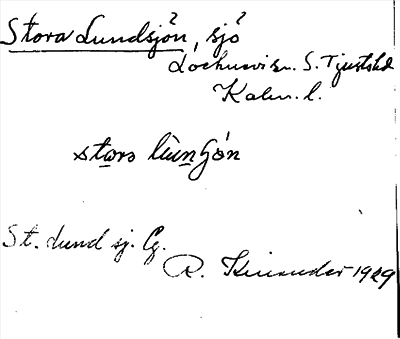 Stora Lundsjön, sjö
Locknevisn. S. Tjusts hd
Kalm. l.
stora lùnʃön
St. Lund sj. Cg.
R. 1929